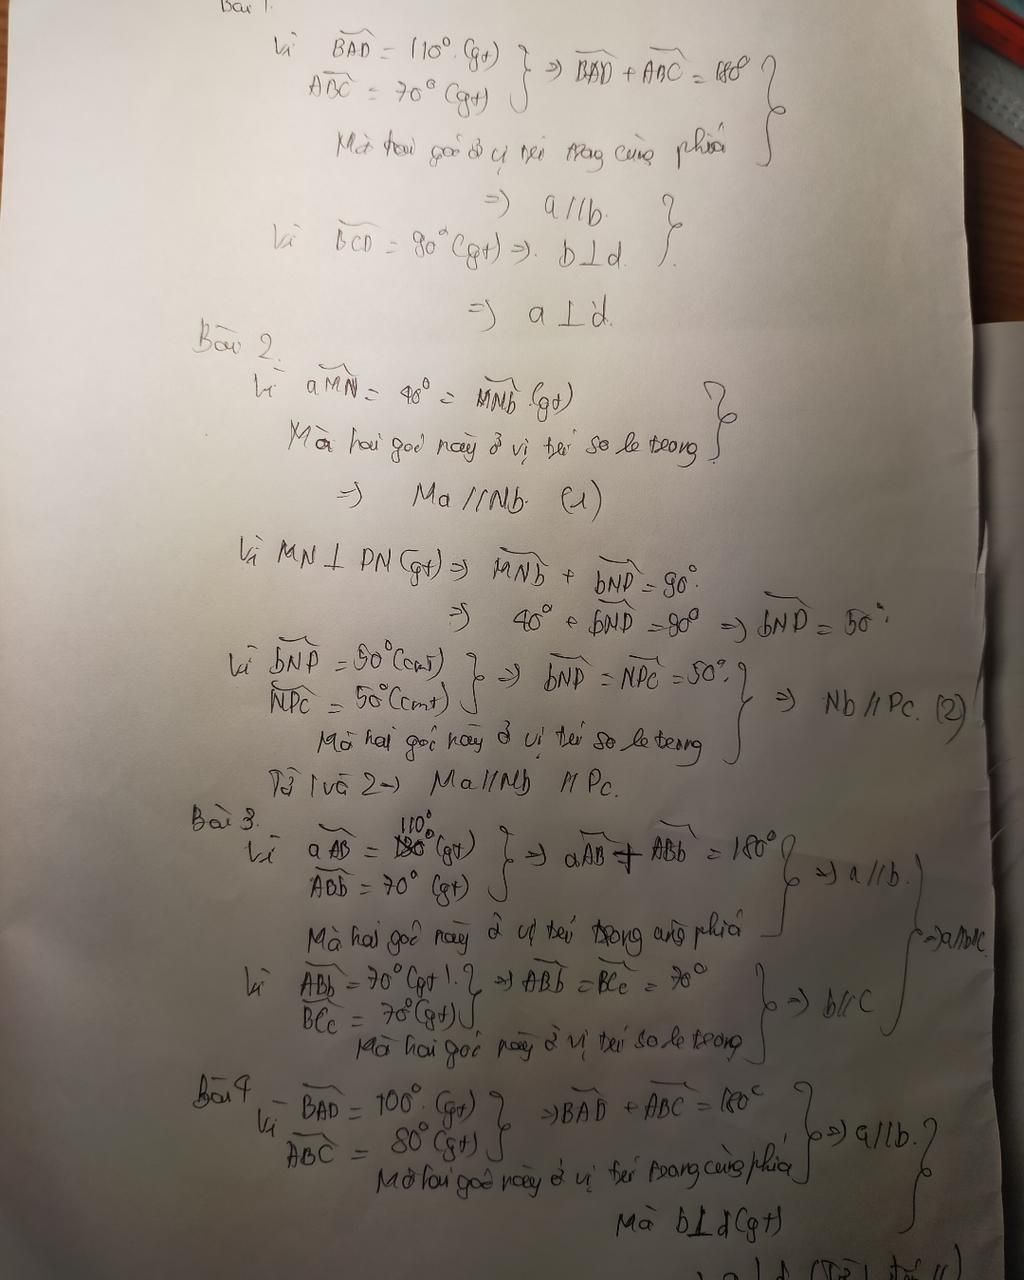 Bài 1.
Vì BAD = 110° (gt)
ABC = 70° (gt)
} => BAD + ABC = 180°
Mà hai góc ở vị trí trong cùng phía
=> a // b.
Vì BCD = 90° (gt) => b ⊥ d.
=> a ⊥ d.
Bài 2.
Vì aMN = 40° = MNb (gt)
Mà hai góc này ở vị trí so le trong
=> Ma // Nb. (1)
Vì MN ⊥ PN (gt) => MNb + bNP = 90°.
=> 40° + bNP = 90° => bNP = 50°.
Vì bNP = 50° (cmt)
NPc = 50° (cmt)
} => bNP = NPc = 50°.
Mà hai góc này ở vị trí so le trong
=> Nb // Pc. (2)
Từ 1 và 2 => Ma // Nb // Pc.
Bài 3.
Vì aAB = 110° (gt)
ABb = 70° (gt)
} => aAB + ABb = 180°
Mà hai góc này ở vị trí trong cùng phía
=> a // b.
Vì ABb = 70° (gt)
BCc = 70° (gt)
} => ABb = BCc = 70°
Mà hai góc này ở vị trí so le trong
=> b // c
Bài 4
Vì BAD = 100° (gt)
ABC = 80° (gt)
} => BAD + ABC = 180°
Mà hai góc này ở vị trí trong cùng phía
=> a // b.
Mà b ⊥ d (gt)